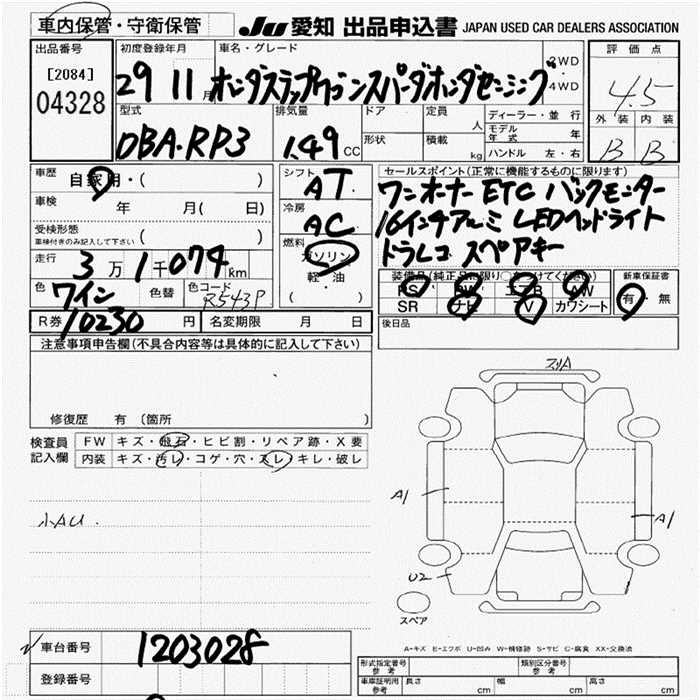 車内保管・守衛保管 JU 愛知 出品申込書 JAPAN USED CAR DEALERS ASSOCIATION
出品番号 初度登録年月 車名・グレード 評価点
[2084] 2WD
04328 29 11 月 ホンダステップワゴンスパーダホンダセンシング 4WD 4.5
外装 内装
型式 排気量 ドア 定員 人 ディーラー・並行 B B
DBA・RP3 1.49 CC 形状 積載 kg モデル年式 年
ハンドル 左・右
車歴 自家用・( ) シフト AT セールスポイント(正常に機能するものに限ります)
車検 年 月( 日) 冷房 AC ワンオーナー ETC バックモニター
受検形態 ( ) 16インチアルミ LEDヘッドライト
車検付きのみ記入して下さい 燃料 ガソリン ドラレコ スペアキー
走行 3万1千074km 軽・油 ( )
色 ワイン 色替 色コード R543P 装備品(純正品に限り○をつけてください) 新車保証書
PS PW エアB AW 有・無
SR ナビ TV カワシート
R券 10230 円 名変期限 月 日 後日品
注意事項申告欄(不具合内容等は具体的に記入して下さい)
修復歴 有 (箇所
検査員 FW キズ・飛石・ヒビ割・リペア跡・X要
記入欄 内装 キズ・汚レ・コゲ・穴・スレ・キレ・破レ
小AU.
A1
A1
U2
スペア
A-キズ E-エクボ U-凹み W-補修跡 S-サビ C-腐食 XX-交換済
車台番号 1203028
登録番号
形式指定番号 参考 類別区分番号 参考
車庫証明用 参考 長さ cm 幅 cm 高さ cm